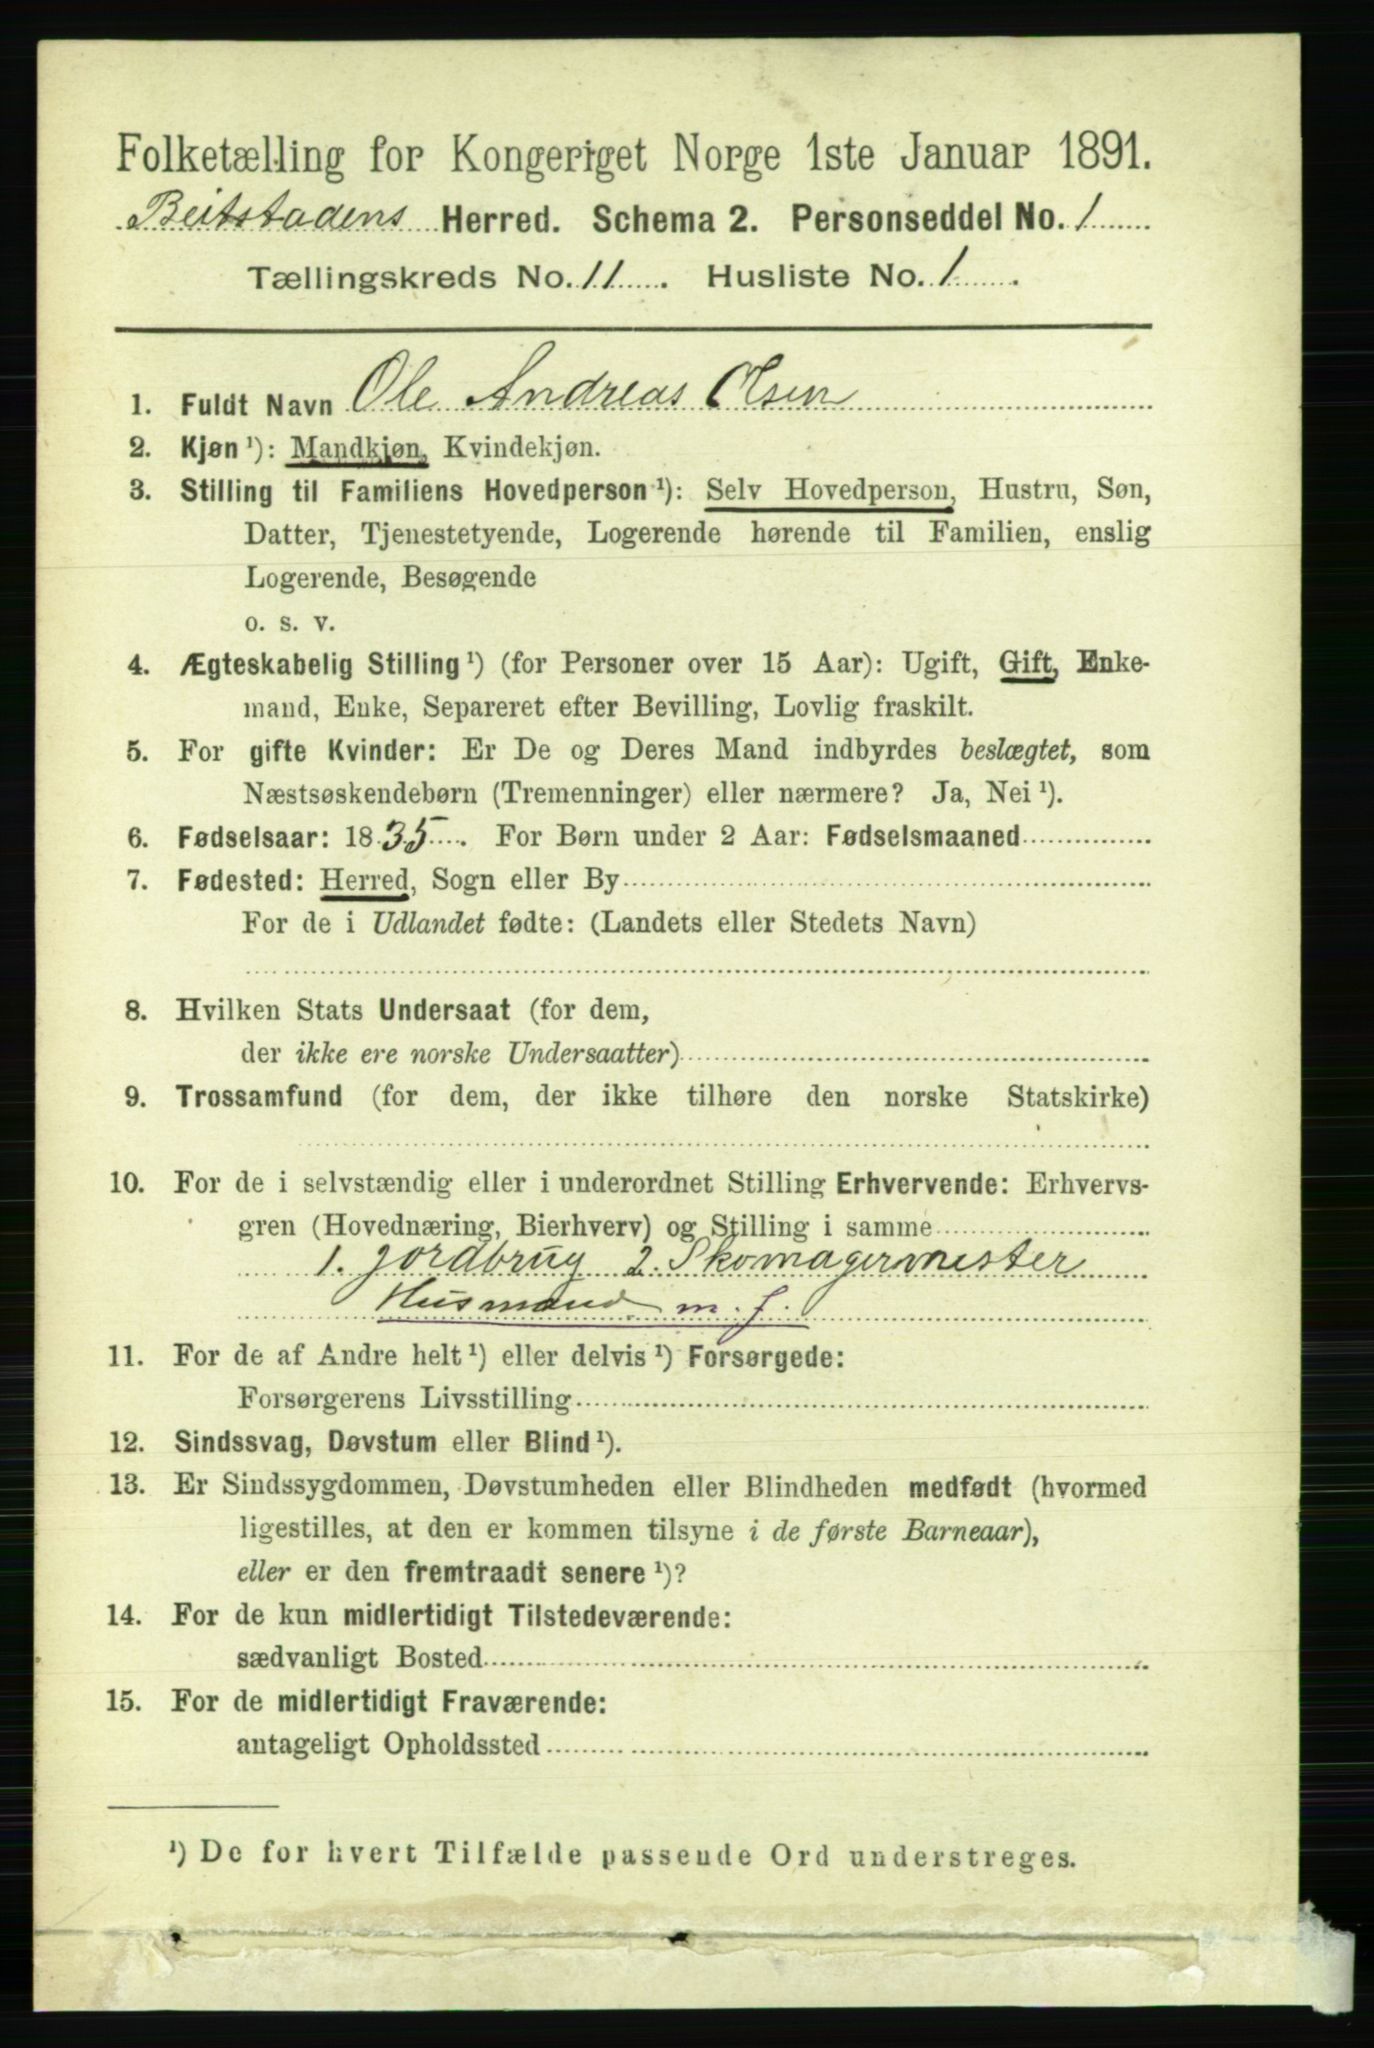 Folketælling for Kongeriget Norge 1ste Januar 1891.
Beitstadens Herred. Schema 2. Personseddel No. 1
Tællingskreds No. 11. Husliste No. 1.
1. Fuldt Navn Ole Andreas Olsen
2. Kjøn ¹): Mandkjøn, Kvindekjøn.
3. Stilling til Familiens Hovedperson ¹): Selv Hovedperson, Hustru, Søn,
Datter, Tjenestetyende, Logerende hørende til Familien, enslig
Logerende, Besøgende
o. s. v.
4. Ægteskabelig Stilling ¹) (for Personer over 15 Aar): Ugift, Gift, Enke-
mand, Enke, Separeret efter Bevilling, Lovlig fraskilt.
5. For gifte Kvinder: Er De og Deres Mand indbyrdes beslægtet, som
Næstsøskendebørn (Tremenninger) eller nærmere? Ja, Nei ¹).
6. Fødselsaar: 1835. For Børn under 2 Aar: Fødselsmaaned
7. Fødested: Herred, Sogn eller By
For de i Udlandet fødte: (Landets eller Stedets Navn)
8. Hvilken Stats Undersaat (for dem,
der ikke ere norske Undersaatter)
9. Trossamfund (for dem, der ikke tilhøre den norske Statskirke)
10. For de i selvstændig eller i underordnet Stilling Erhvervende: Erhvervs-
gren (Hovednæring, Bierhverv) og Stilling i samme
1. Jordbrug 2. Skomagermester
Husmand m. j.
11. For de af Andre helt ¹) eller delvis ¹) Forsørgede:
Forsørgerens Livsstilling
12. Sindssvag, Døvstum eller Blind ¹).
13. Er Sindssygdommen, Døvstumheden eller Blindheden medfødt (hvormed
ligestilles, at den er kommen tilsyne i de første Barneaar),
eller er den fremtraadt senere ¹)?
14. For de kun midlertidigt Tilstedeværende:
sædvanligt Bosted
15. For de midlertidigt Fraværende:
antageligt Opholdssted
¹) De for hvert Tilfælde passende Ord understreges.